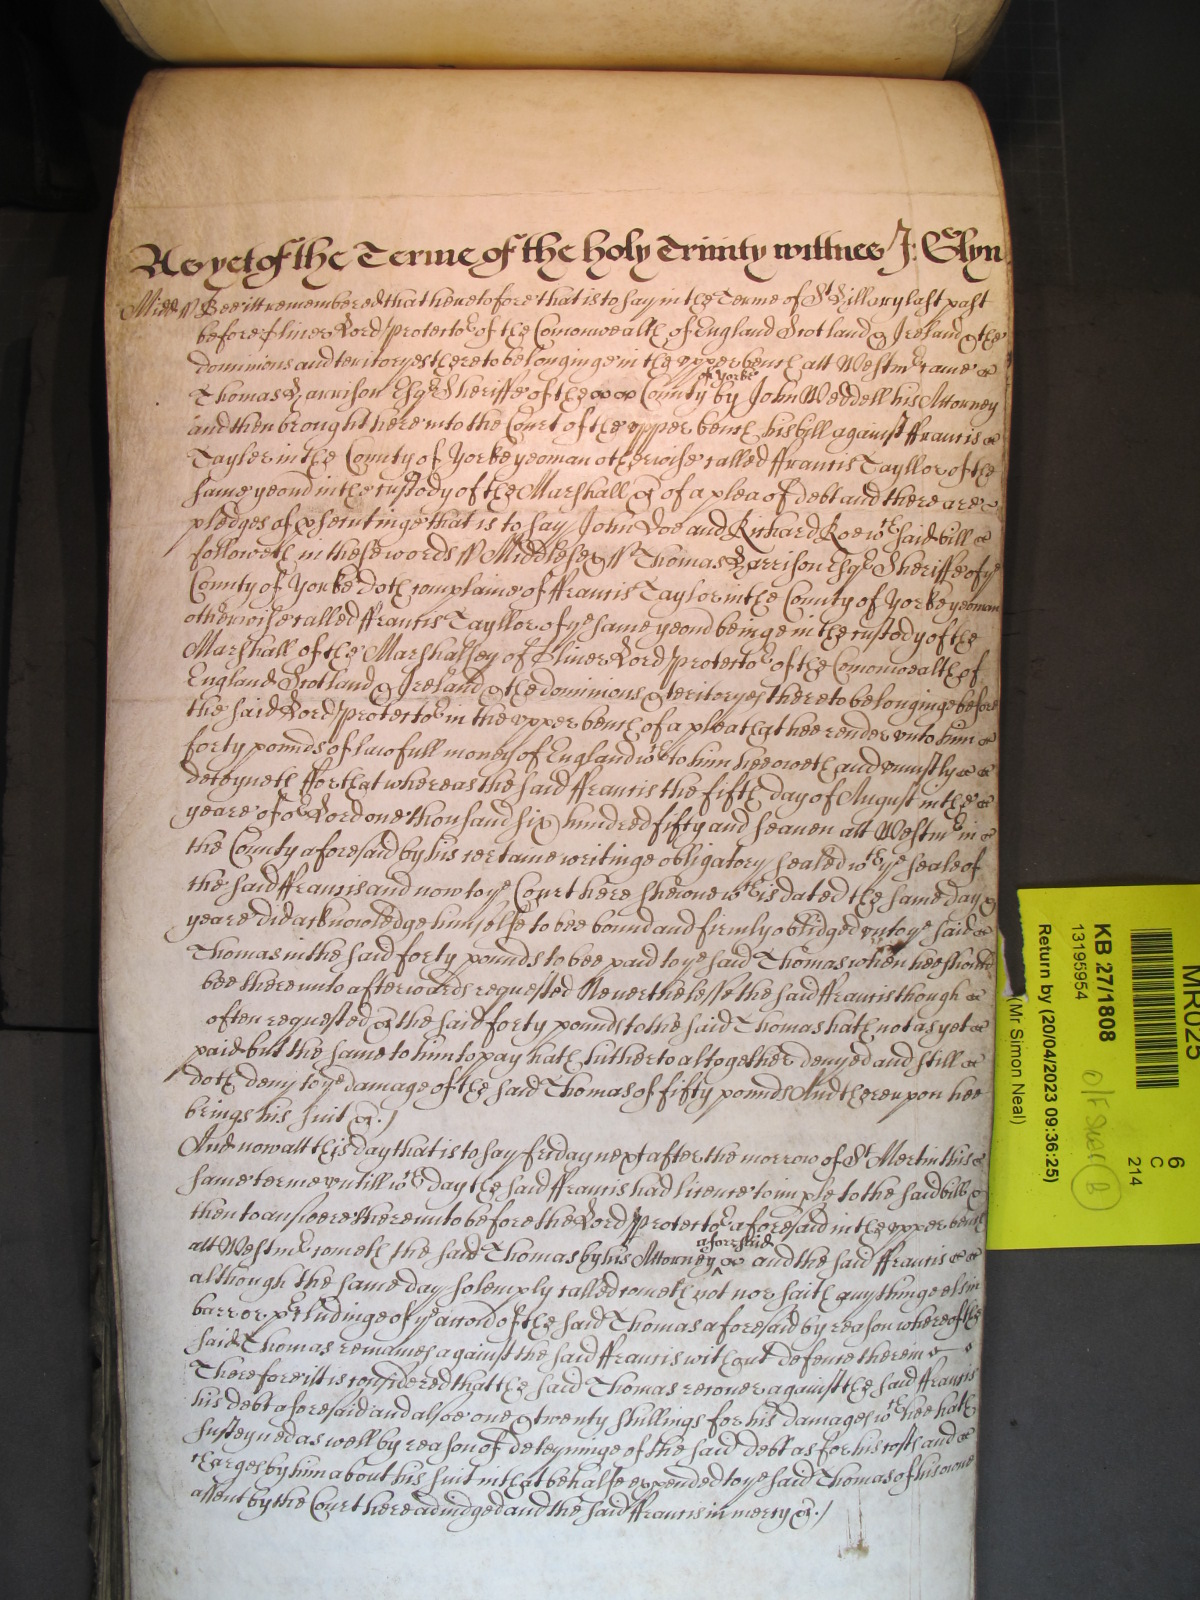 As yet of the Terme of the holy Trinity wittnes J: Glyn
Midd ss Bee itt remembered that heretofore that is to say in the Terme of St Hillary last past
before Oliver Lord protector of the Comonwealth of England Scotland & Ireland & the
dominions and territoryes thereto belonginge in the upper bench att Westmr came
of Yorke
Thomas Harrison Esqr Sheriffe of the County by John Weddell his Attorney
and then brought here into the Court of the upper bench his bill against ffrancis
Tayler in the County of Yorke yeoman otherwise called ffrancis Tayllor of the
same yeond in the custody of the Marshall &c of a plea of debt and there are
pledges of psecutinge that is to say John Doe and Richard Roe wch said bill
followeth in these words ss Middlesex ss Thomas Harrison Esqr Sheriffe of ye
County of Yorke doth complaine of ffrancis Taylor in the County of Yorke yeoman
otherwise called ffrancis Tayllor of ye same yeond beinge in the custody of the
Marshall of the Marshalsey of Oliver Lord protector of the Comonwealth of
England Scotland & Ireland & the dominions & territoryes thereto belonginge before
the said Lord protector in the upper bench of a plea that hee render unto him
forty pounds of lawfull money of England wch to him hee oweth and uniustly
deteyneth ffor that whereas the said ffrancis the fifth day of August in the
yeare of or Lord one thousand six hundred fifty and seaven att Westmr in
the County aforesaid by his certaine writinge obligatory sealed wth ye seale of
the said ffrancis and now to ye Court here shewne wch is dated the same day &
yeare did acknowledge himselfe to bee bound and firmly oblidged unto ye said
Thomas in the said forty pounds to bee paid to ye said Thomas when hee should
bee thereunto afterwards requested Neverthelesse the said ffrancis though
often requested &c the said forty pounds to the said Thomas hath not as yet
paid but the same to him to pay hath hitherto altogether denyed and still
doth deny to ye damage of the said Thomas of fifty pounds And thereupon hee
brings his suit &c./
And now att this day that is to say friday next after the morrow of St Martin this
same terme untill wch day the said ffrancis had licence to imple to the said bill &
then to answere thereunto before the Lord protector aforesaid in the upper bench
aforesaid
att Westmr cometh the said Thomas by his Attorney and the said ffrancis
although the same day solemply called cometh not nor saith anythinge els in
barr or pcludinge of ye accon of the said Thomas aforesaid by reason whereof the
said Thomas remaines against the said ffrancis without defence therein
Therefore itt is considered that the said Thomas recover against the said ffrancis
his debt aforesaid and alsoe one & twenty shillings for his damages wch hee hath
susteyned as well by reason of deteyninge of the said debt as for his costs and
charges by him about his suit in that behalfe expended to ye said Thomas of his owne
assent by the Court here adiudged and the said ffrancis in mercy &c./
MR025
6
C
214
KB 27/1808
13195954
Return by (20/04/2023 09:36:25)
(Mr. Simon Neal)